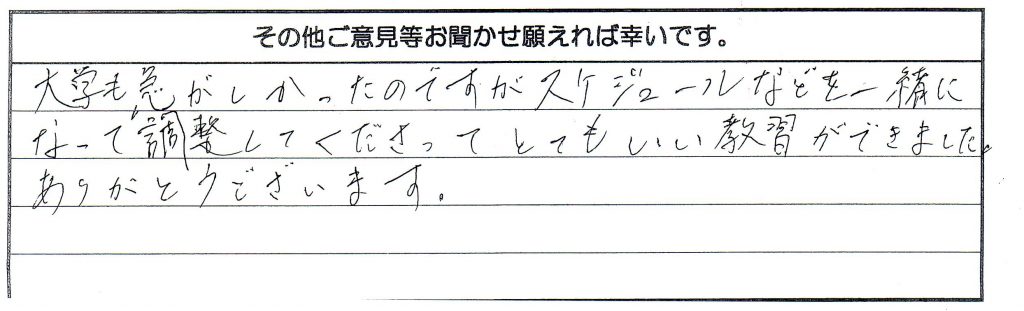 その他ご意見等お聞かせ願えれば幸いです。
大学も急がしかったのですがスケジュールなどを一緒に
なって調整してくださってとてもいい教習ができました。
ありがとうございます。